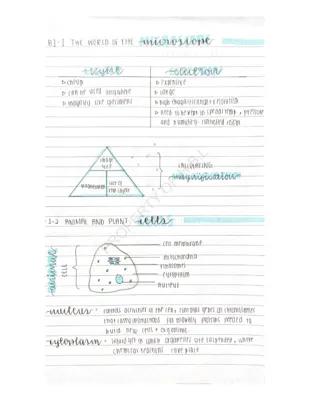 B1-1 THE WORLD OF THE microscope
light
electron
▷ cheap
▷ can be used anywhere
▷ magnify live specimens
▷ expensive
▷ large
▷ high magnification & resolution
▷ need to be kept in special temp, pressure
and humidity controlled room
image
size
magnification
size of
the object
calculating
magnification
1-2 ANIMAL AND PLANT cells
animal
CELL
cell membrane
mitochondria
ribosomes
cytoplasm
nucleus
PROPERTY OF
nucleus
controls activities in the cell, contains genes on chromosomes
that carry instructions for making proteins needed to
build new cells & organisms
cytoplasm
liquid gel in which organelles are suspended, where
chemical reactions take place